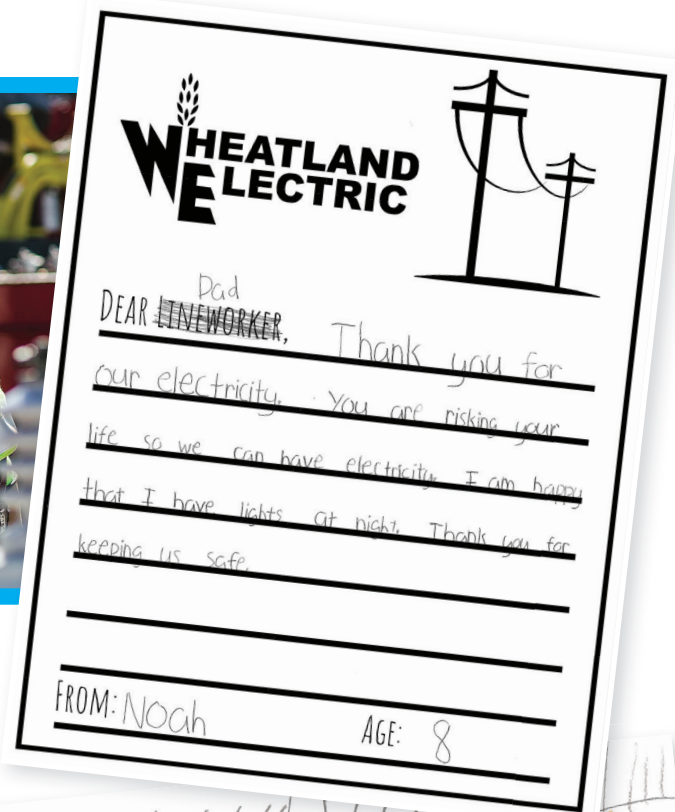 WHEATLAND
ELECTRIC
Dad
DEAR LINEWORKER, Thank you for
our electricity. You are risking your
life so we can have electricity. I am happy
that I have lights at night. Thank you for
keeping us safe.
FROM: Noah AGE: 8